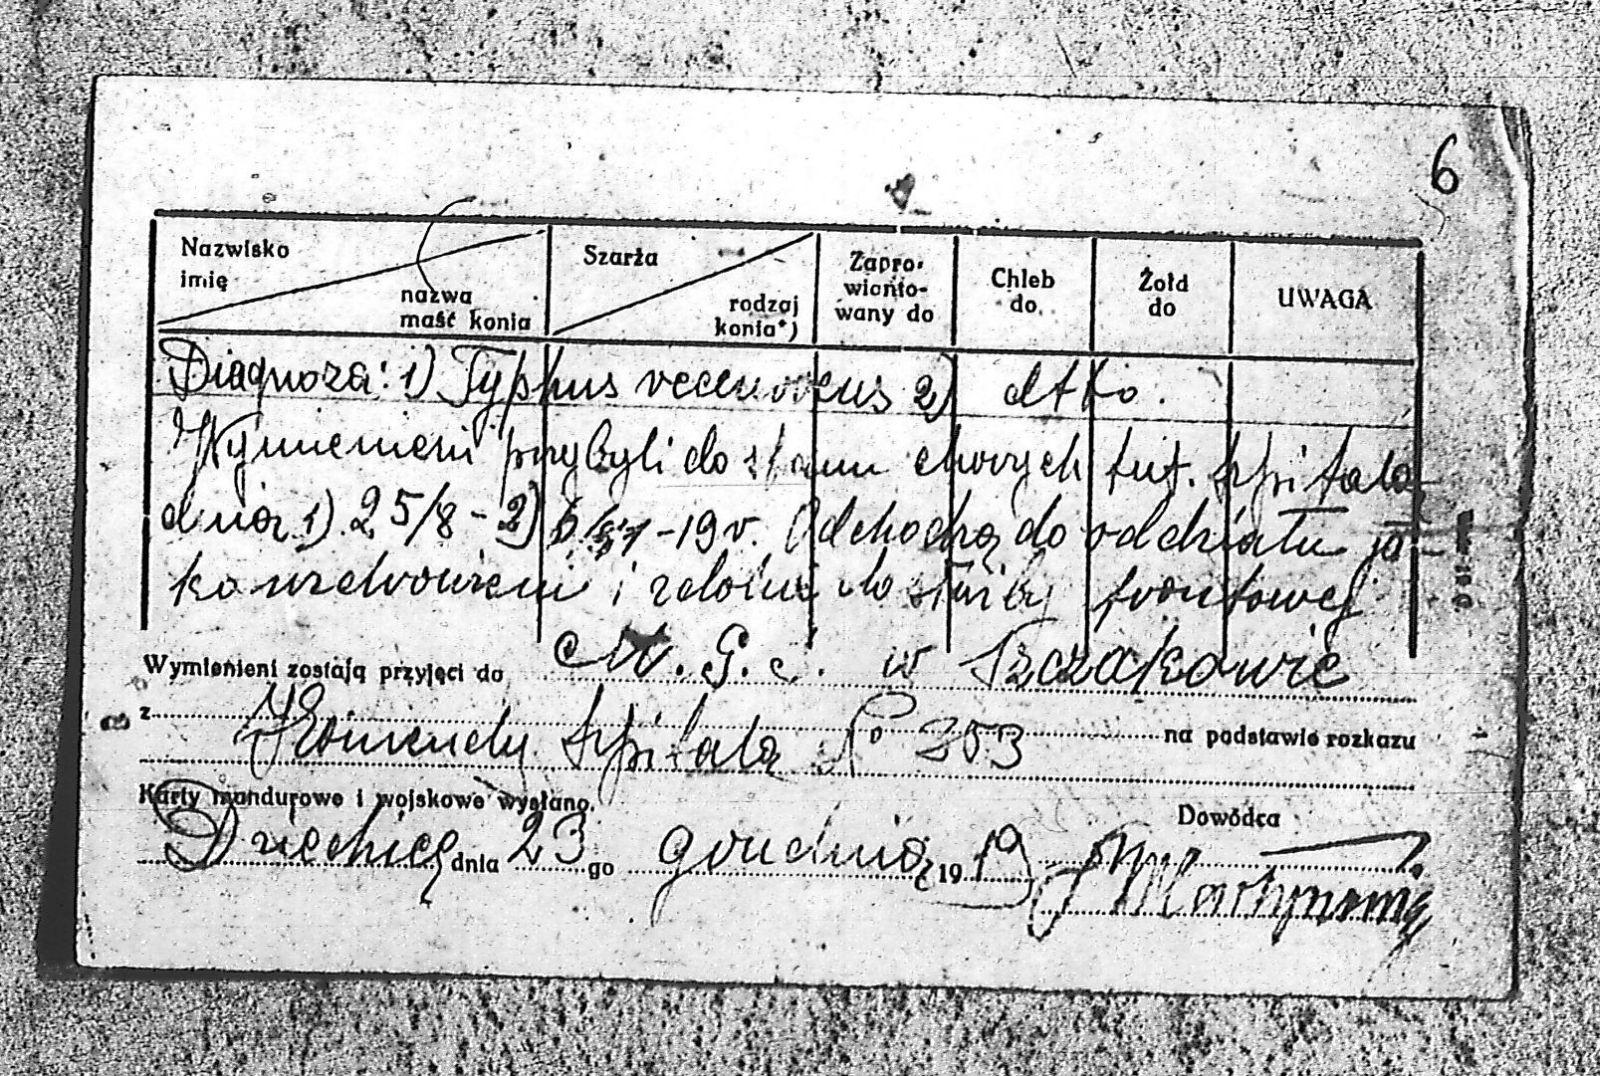 6
Nazwisko
imię
nazwa
maść konia
Szarża
rodzaj
konia*)
Zapro-
wianto-
wany do
Chleb
do
Żołd
do
UWAGA
Diagnoza: 1) Typhus recurrens 2) dtto.
Wymienieni przybyli do stanu chorych tut. szpitala
dnia 1) 25/8 - 2) -19 r. Odchodzą do oddziału ja-
ko uzdrowieni i zdolni do służby frontowej
Wymienieni zostają przyjęci do w Szczakowie
z
Komendy szpitala No 353 na podstawie rozkazu
Karty mundurowe i wojskowe wysłano.
Dowódca
Dziedzice dnia 23 go grudnia 1919